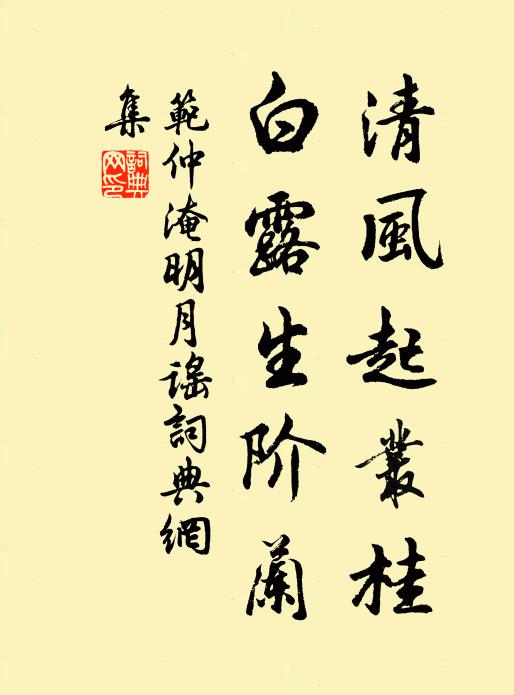 清風起叢桂
白露生阶蘭
範仲淹明月謠詞典網
集
詞典
网印